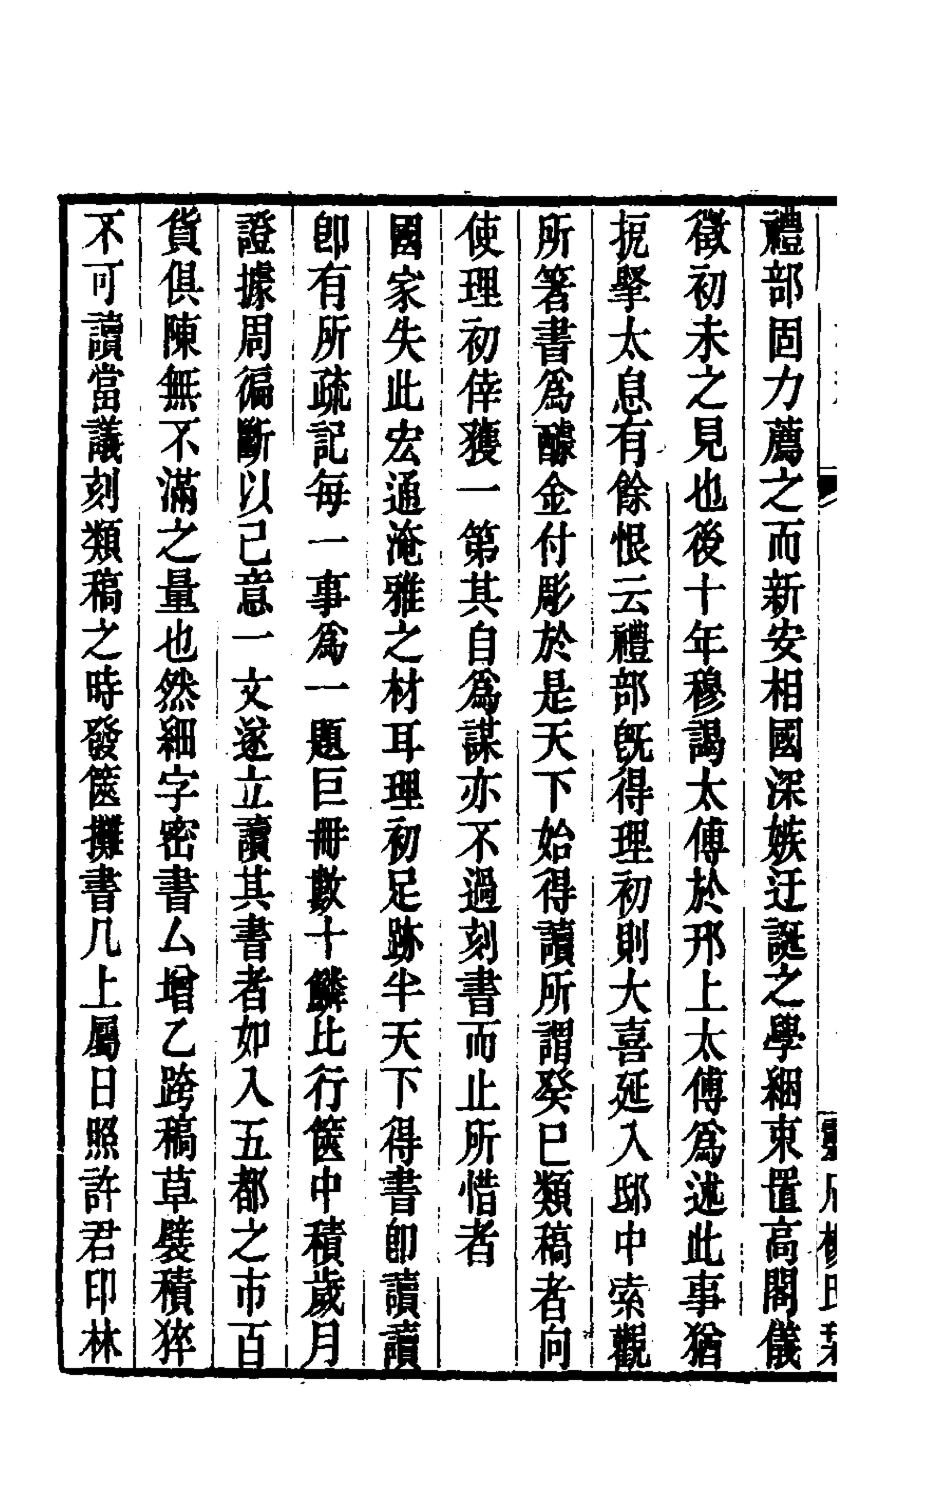 禮部固力薦之而新安相國深嫉迂誕之學絪束置高閣儀
徵初未之見也後十年穆謁太傅於邗上太傅爲述此事猶
扼掔太息有餘恨云禮部旣得理初則大喜延入邸中索觀
所箸書爲醵金付彫於是天下始得讀所謂癸巳類稿者向
使理初倖獲一第其自爲謀亦不過刻書而止所惜者
國家失此宏通淹雅之材耳理初足跡半天下得書卽讀讀
卽有所疏記每一事爲一題巨冊數十鱗比行篋中積歲月
證據周徧斷以己意一文遂立讀其書者如入五都之市百
貨俱陳無不滿之量也然細字密書厶增乙跨稿草襞積猝
不可讀當議刻類稿之時發篋攤書几上屬日照許君印林